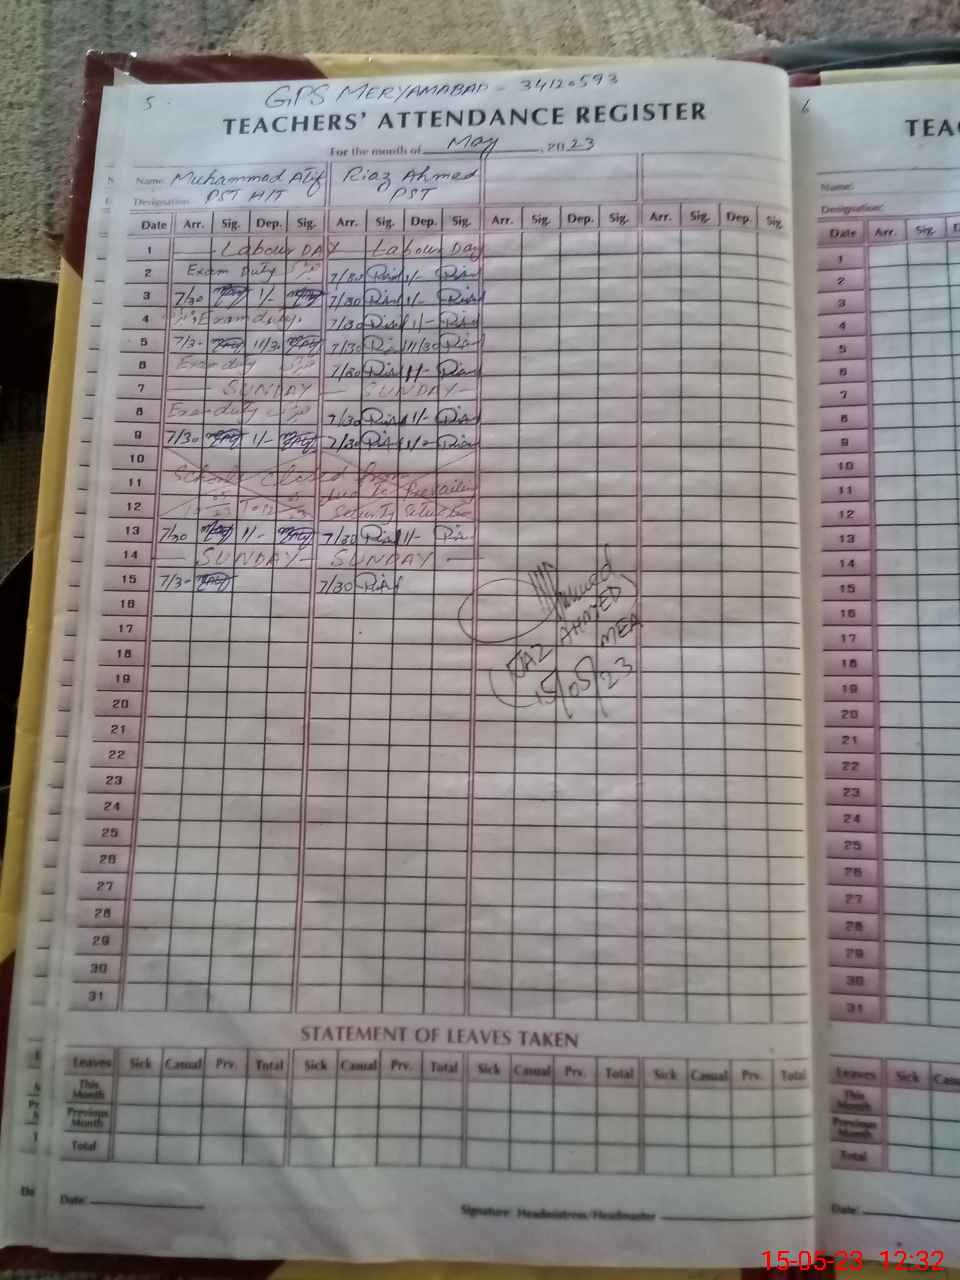 5 GPS MERYAMABAD - 34120593
TEACHERS' ATTENDANCE REGISTER
For the month of May, 2023
Name: Muhammad Atif Riaz Ahmed
Designation: PST H/T PST
Date Arr. Sig. Dep. Sig. Arr. Sig. Dep. Sig. Arr. Sig. Dep. Sig. Arr. Sig. Dep. Sig.
1 Labour DAY Labour Day
2 Exam Duty 7/30 Riaz 1/- Riaz
3 7/30 1/- 7/30 Riaz 1/- Riaz
4 Exam duty 7/30 Riaz 1/- Riaz
5 7/3- 11/30 7/30 Riaz 11/30 Riaz
6 Exam duty 7/30 Riaz 1/- Riaz
7 — SUNDAY — SUNDAY —
8 Exam duty 7/30 Riaz 1/- Riaz
9 7/30 1/- 7/30 Riaz 1/- Riaz
10
11 Schools Closed from due to Prevailing
12 To Security Situation
13 7/30 1/- 7/30 Riaz 1/- Riaz
14 — SUNDAY — SUNDAY —
15 7/3- 7/30 Riaz
16
17
18
19
20
21
22
23
24
25
26
27
28
29
30
31
AHMED
MEA
15/05/23
STATEMENT OF LEAVES TAKEN
Leaves Sick Casual Prv. Total Sick Casual Prv. Total Sick Casual Prv. Total Sick Casual Prv. Total
This Month
Previous Month
Total
Date: Signature: Headmistress/Headmaster
6
TEAC
Name:
Designation:
Date Arr. Sig.
1
2
3
4
5
6
7
8
9
10
11
12
13
14
15
16
17
18
19
20
21
22
23
24
25
26
27
28
29
30
31
Leaves Sick Cas
This Month
Previous Month
Total
Date:
15-05-23 12:32